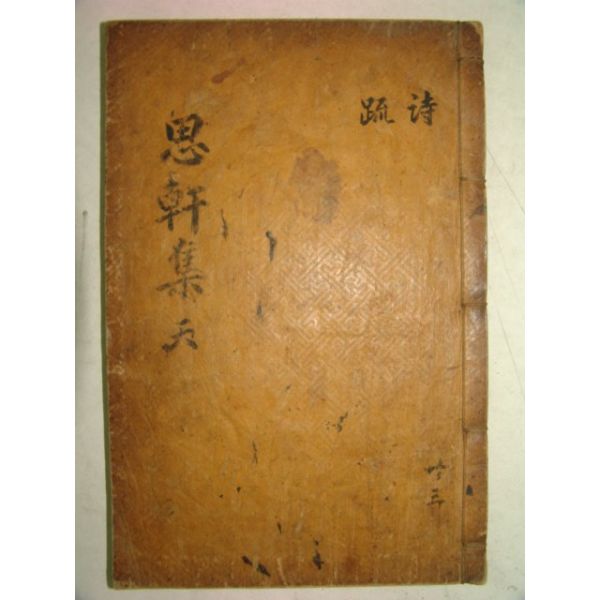 詩
疏
思軒集 天
共三